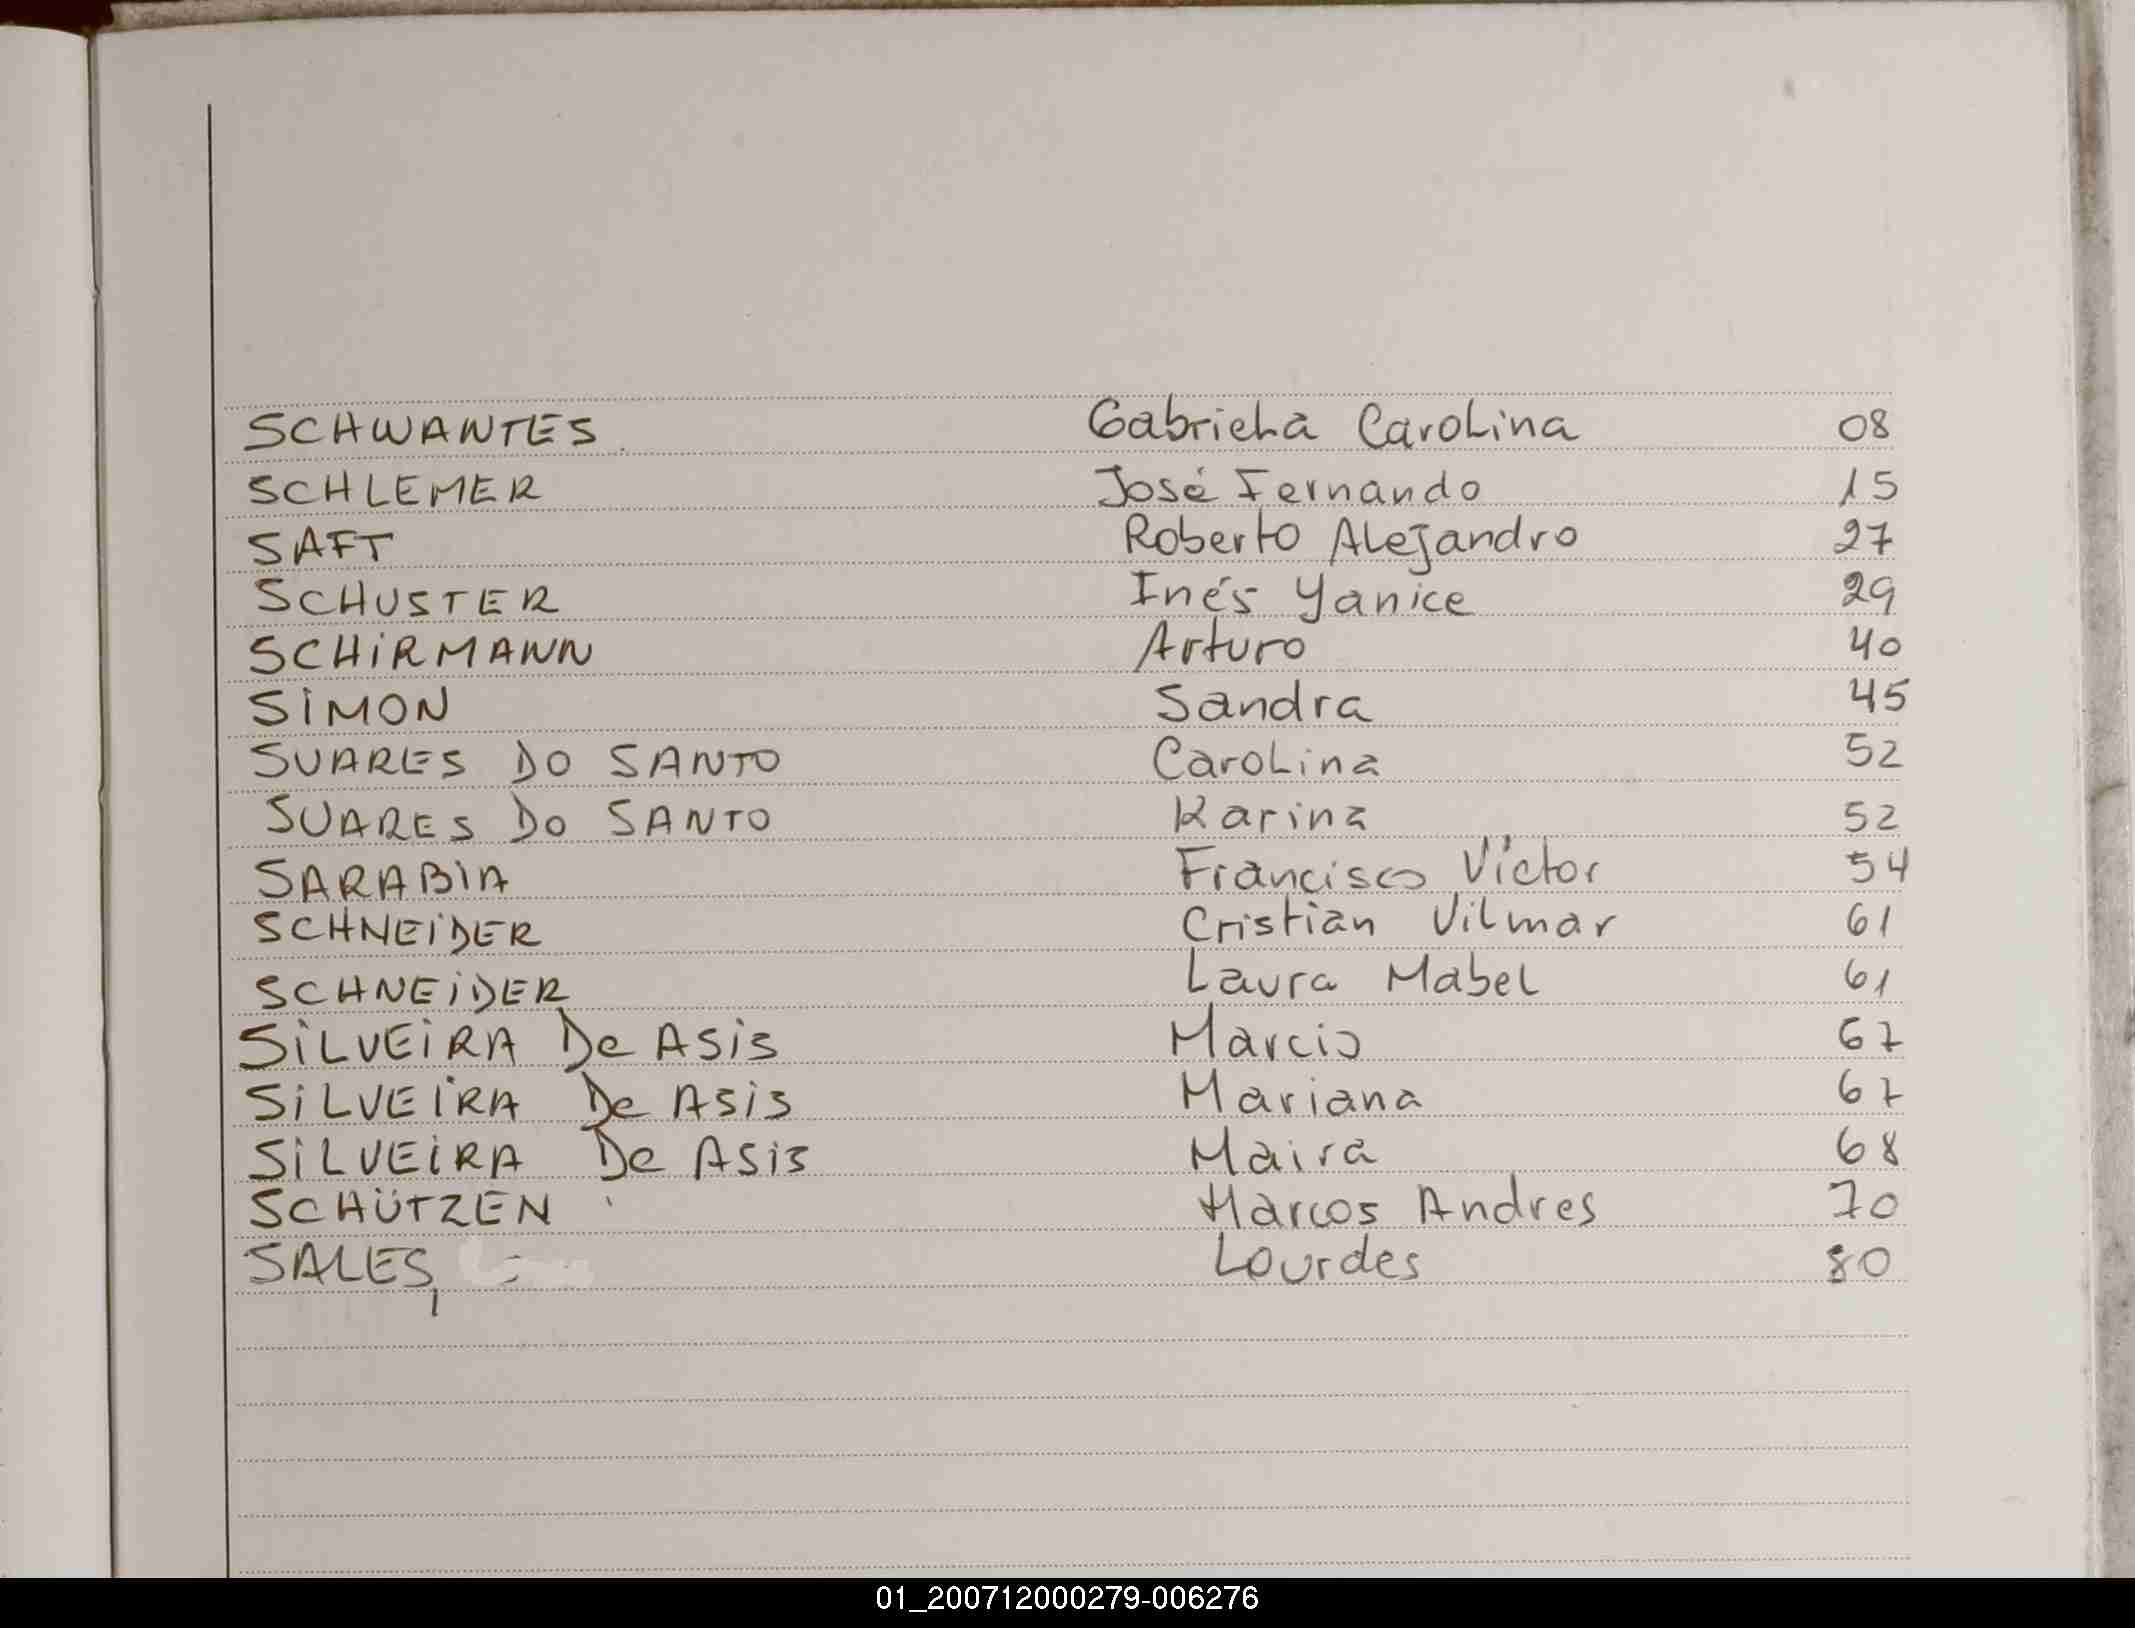 SCHWANTES Gabriela Carolina 08
SCHLEMER José Fernando 15
SAFT Roberto Alejandro 27
SCHUSTER Inés Yanice 29
SCHIRMANN Arturo 40
SIMON Sandra 45
SUARES DO SANTO Carolina 52
SUARES DO SANTO Karina 52
SARABIA Francisco Víctor 54
SCHNEIDER Cristian Vilmar 61
SCHNEIDER Laura Mabel 61
SILVEIRA De ASIS Marcio 67
SILVEIRA De ASIS Mariana 67
SILVEIRA De ASIS Maira 68
SCHÜTZEN Marcos Andres 70
SALES, Lourdes 80
01_200712000279-006276